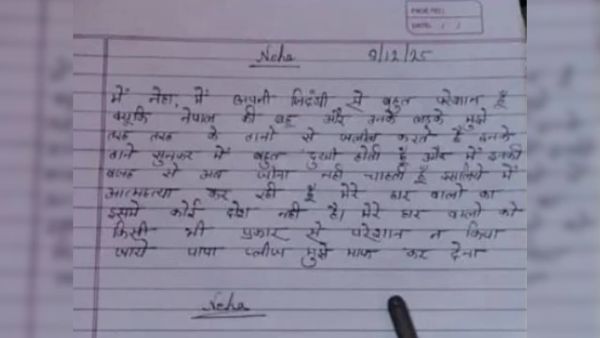 PAGE NO.:
DATE: / /
Neha 9/12/25
मैं नेहा, मैं अपनी जिंदगी से बहुत परेशान हूँ
क्यूकि नेपाल की बहू और उनके लडके मुझे
तरह तरह के तानो से जलील करते है इनके
ताने सुनकर में बहुत दुखी होती हूँ और में इनकी
वजह से अब जीना नही चाहती हूँ इसलिये में
आत्महत्या कर रही हूँ मेरे घर वालो का
इसमे कोई दोश नही है। मेरे घर वालो को
किसी भी प्रकार से परेशान न किया
जाये पापा प्लीज मुझे माफ कर देना
Neha